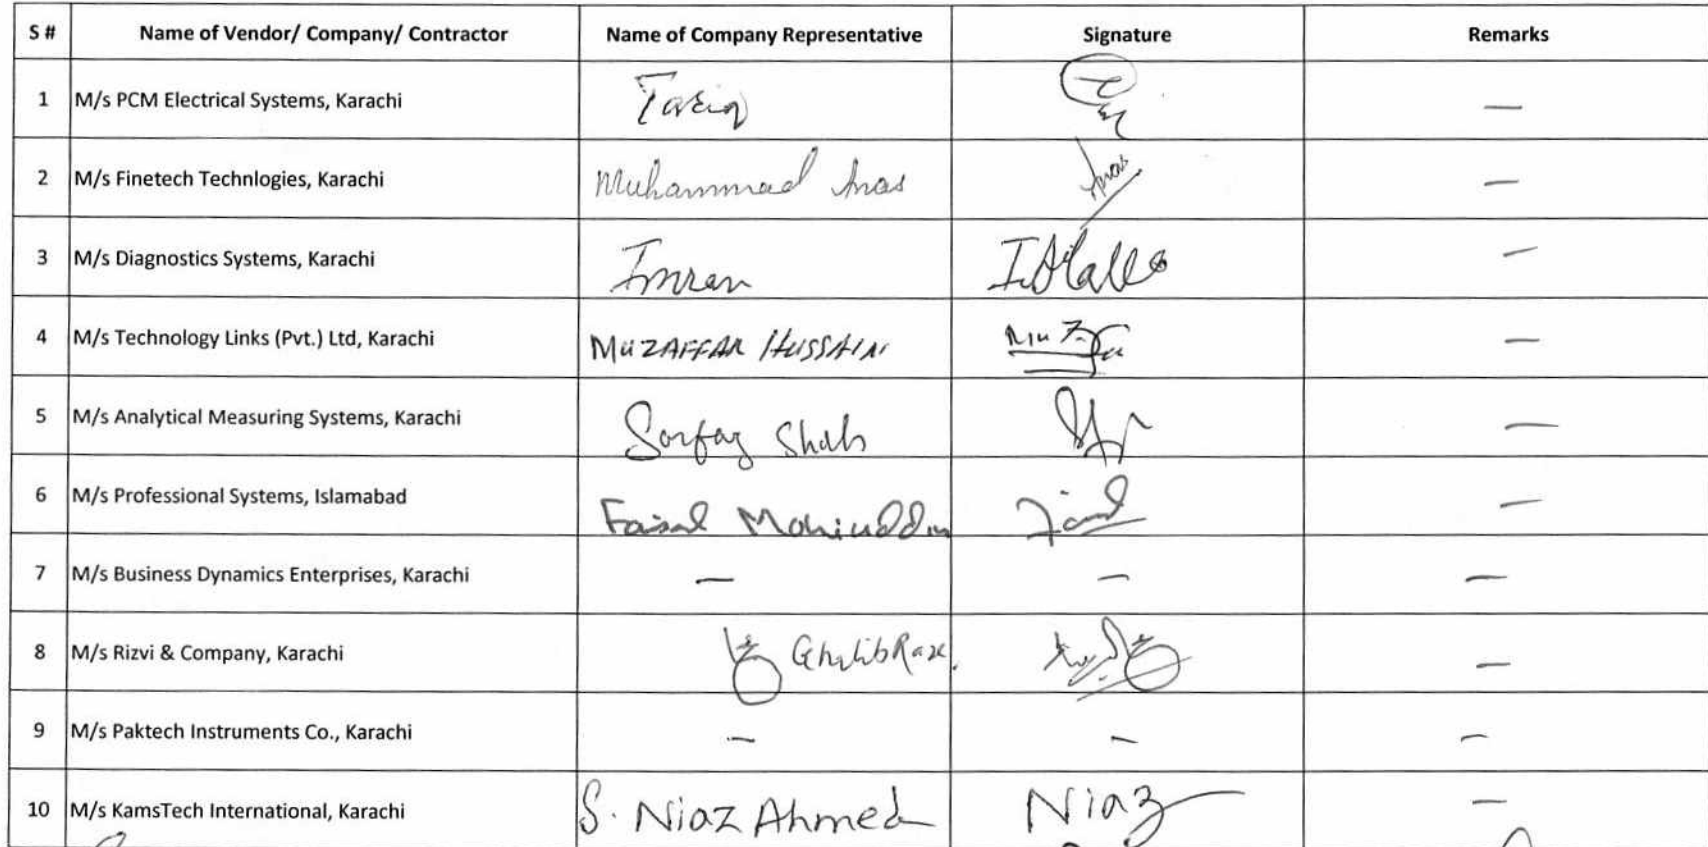 S # Name of Vendor/ Company/ Contractor Name of Company Representative Signature Remarks
1 M/s PCM Electrical Systems, Karachi Tariq —
2 M/s Finetech Technlogies, Karachi Muhammad Anas Anas —
3 M/s Diagnostics Systems, Karachi Imran —
4 M/s Technology Links (Pvt.) Ltd, Karachi MUZAFFAR HUSSAIN —
5 M/s Analytical Measuring Systems, Karachi Sarfaz Shah —
6 M/s Professional Systems, Islamabad Faisal Mohiuddin —
7 M/s Business Dynamics Enterprises, Karachi — — —
8 M/s Rizvi & Company, Karachi Ghalib Raza —
9 M/s Paktech Instruments Co., Karachi — — —
10 M/s KamsTech International, Karachi S. Niaz Ahmed Niaz —